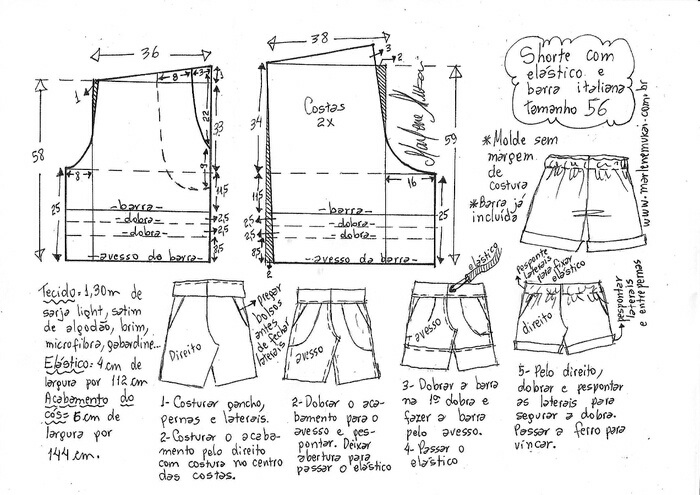 36
8
3
1
1
22
33
5
58
8
11,5
25
-barra-
-dobra-
-dobra-
-avesso da barra-
2,5
2,5
3,5
38
3
2
Costas
2x
Marlene Mukai
34
59
16
11,5
25
25
-barra-
-dobra-
-dobra-
-avesso da barra-
2,5
2,5
3,5
2
Shorte com
elástico e
barra italiana
tamanho 56
www.marlenemukai.com.br
*Molde sem
margem
de
costura
*Barra já
incluída
Tecido=1,90m de
sarja light, satim
de algodão, brim,
microfibra, gabardine...
Elástico=4cm de
largura por 112cm
Acabamento do
cós=6cm de
largura por
144cm.
Direito
Pregar
bolsos
antes
de fechar
laterais
avesso
elástico
avesso
Pesponte
laterais
para fixar
elástico
direito
pespontar
laterais
e entrepernas
1- Costurar gancho,
pernas e laterais.
2- Costurar o acaba-
mento pelo direito
com costura no centro
das costas.
2- Dobrar o aca-
bamento para o
avesso e pes-
pontar. Deixar
abertura para
passar o elástico
3- Dobrar a barra
na 1ª dobra e
fazer a barra
pelo avesso.
4- Passar o
elástico
5- Pelo direito,
dobrar e pespontar
as laterais para
segurar a dobra.
Passar a ferro para
vincar.